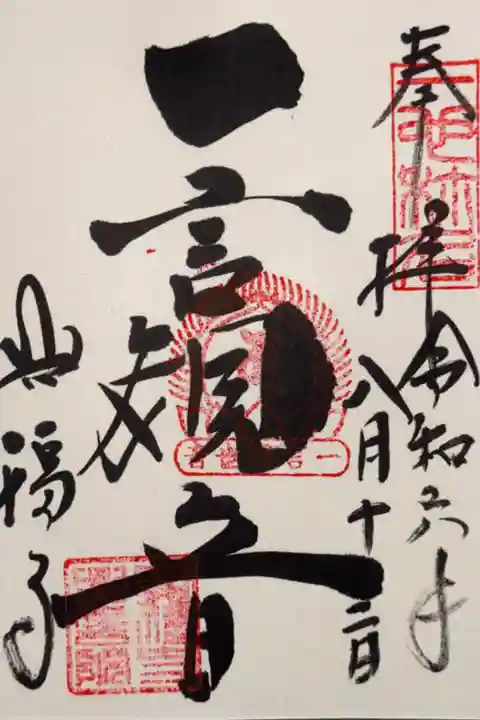 奉拝
令和六年
八月十二日
一言観音
興福寺
一言観音